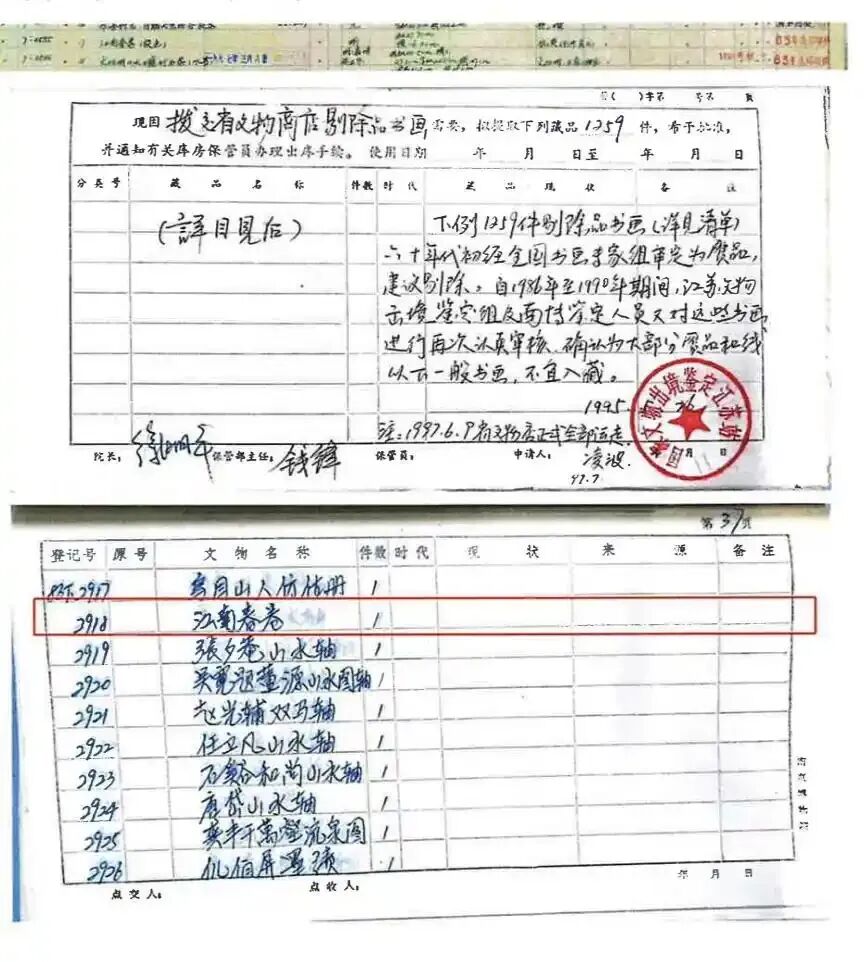 江南春卷
一九九七年三月八日
字( )字第 号第 页
现因 拨交省文物商店剔除品书画 需要,拟提取下列藏品 1259 件,希予批准,
并通知有关库房保管员办理出库手续。 使用日期 年 月 日至 年 月 日
分类号 藏品名称 件数 时代 藏品现状 备注
(詳目見后)
下例1259件剔除品书画(详见清单)
六十年代初经全国书画专家组审定为赝品,
建议剔除。自1986年至1990年期间,江苏文物
出境鉴定组及南博鉴定人员又对这些书画
进行再次认真审核,确认为大部分赝品和线
以下一般书画,不宜入藏。
1995. 26
注:1997.6.9省文物店正式全部运走
国家文物出境鉴定江苏站
院长: 徐湖平 保管部主任: 钱锋 保管员: 申请人: 凌波 月 日
97.7
第37页
登记号 原号 文物名称 件数 时代 现状 来源 备注
2917 1
2918 江南春卷 1
2919 張夕菴山水轴 1
2920 吴寬題董源山水图轴 1
2921 赵光辅双马轴 1
2922 任立凡山水轴 1
2923 石谿和尚山水轴 1
2924 唐岱山水轴 1
2925 龚半千萬壑流泉图 1
2926 1
年 月 日
点交人: 点收人:
南京博物院